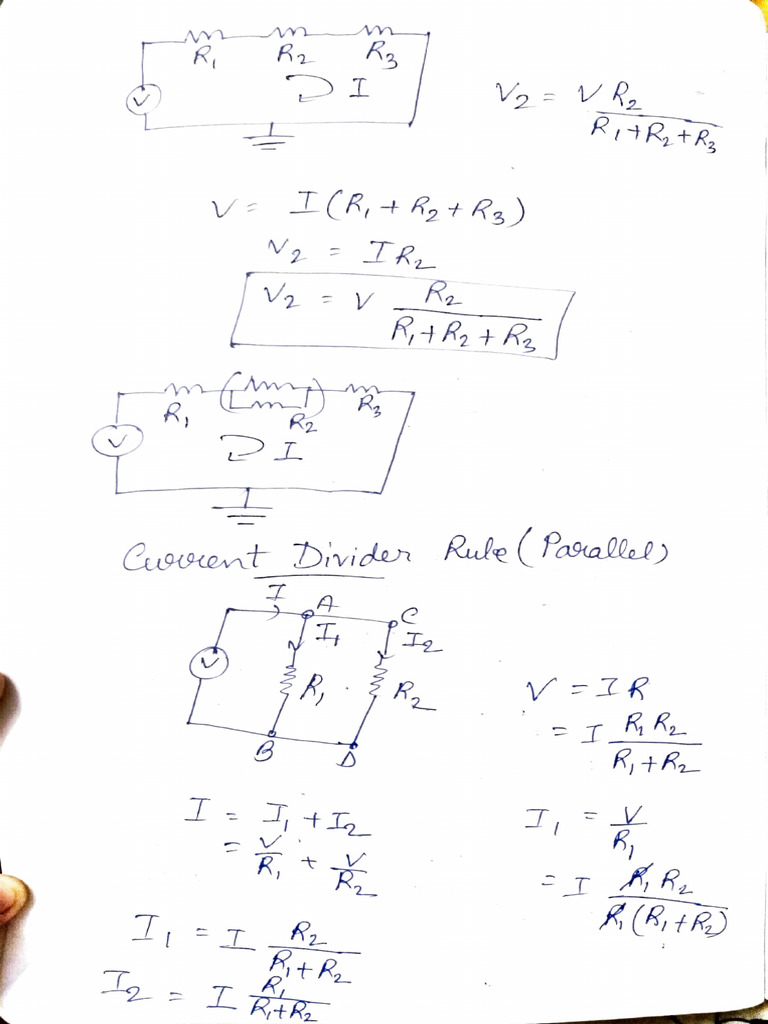 R₁ R₂ R₃
V I
V₂ = V R₂ / (R₁ + R₂ + R₃)
V = I (R₁ + R₂ + R₃)
V₂ = I R₂
V₂ = V R₂ / (R₁ + R₂ + R₃)
R₁ R₂ R₃
V I
Current Divider Rule (Parallel)
I A C
I₁ I₂
V R₁ R₂
B D
V = I R
= I R₁ R₂ / (R₁ + R₂)
I = I₁ + I₂
= V/R₁ + V/R₂
I₁ = V/R₁
= I R₁ R₂ / R₁ (R₁ + R₂)
I₁ = I R₂ / (R₁ + R₂)
I₂ = I R₁ / (R₁ + R₂)